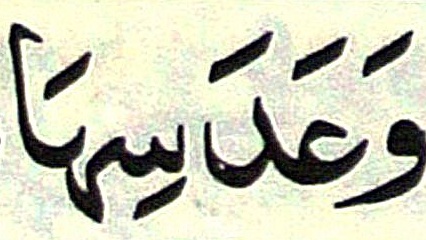 وَعَدَسِهَا